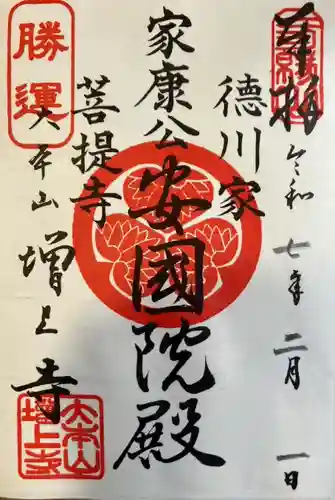 奉拝
令和七年二月一日
徳川家
家康公安國院殿
菩提寺
勝運
大本山
増上寺
大本山
増上寺